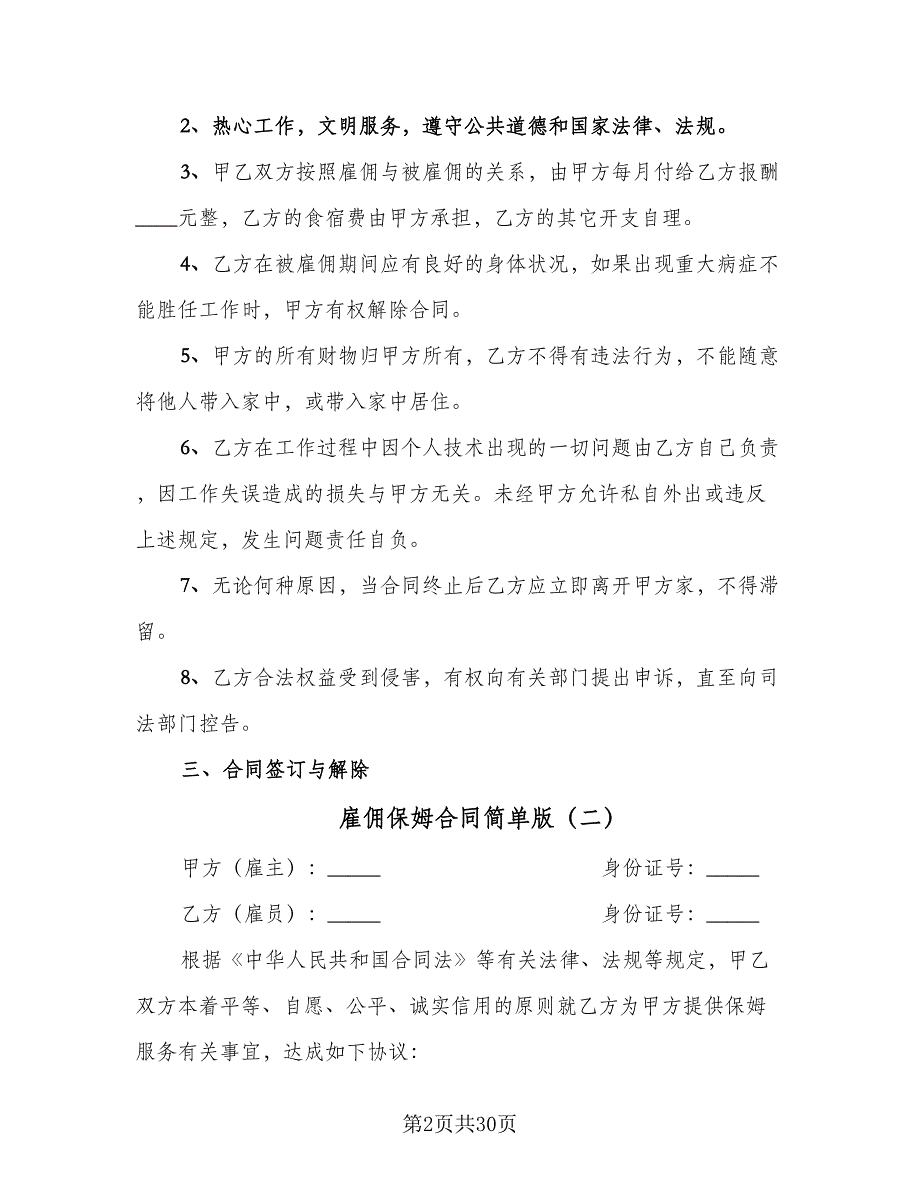 2、热心工作，文明服务，遵守公共道德和国家法律、法规。
3、甲乙双方按照雇佣与被雇佣的关系，由甲方每月付给乙方报酬
____元整，乙方的食宿费由甲方承担，乙方的其它开支自理。
4、乙方在被雇佣期间应有良好的身体状况，如果出现重大病症不
能胜任工作时，甲方有权解除合同。
5、甲方的所有财物归甲方所有，乙方不得有违法行为，不能随意
将他人带入家中，或带入家中居住。
6、乙方在工作过程中因个人技术出现的一切问题由乙方自己负责
，因工作失误造成的损失与甲方无关。未经甲方允许私自外出或违反
上述规定，发生问题责任自负。
7、无论何种原因，当合同终止后乙方应立即离开甲方家，不得滞
留。
8、乙方合法权益受到侵害，有权向有关部门提出申诉，直至向司
法部门控告。
三、合同签订与解除
雇佣保姆合同简单版（二）
甲方（雇主）：_____ 身份证号：_____
乙方（雇员）：_____ 身份证号：_____
根据《中华人民共和国合同法》等有关法律、法规等规定，甲乙
双方本着平等、自愿、公平、诚实信用的原则就乙方为甲方提供保姆
服务有关事宜，达成如下协议：
第2页共30页